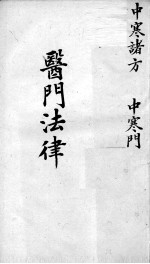 中寒諸方　中寒門
醫門法律